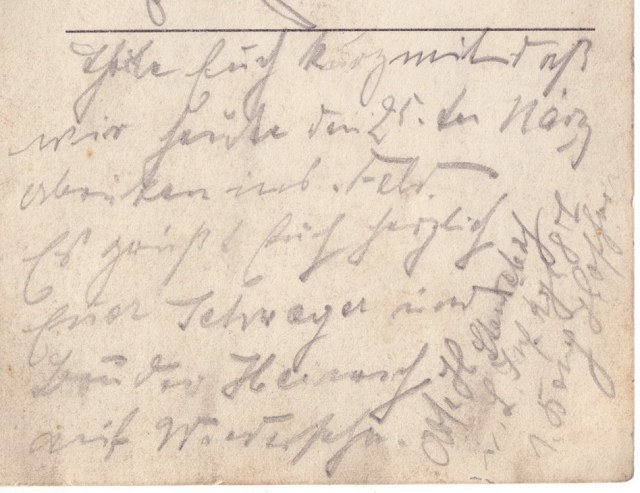 Theile Euch kurz mit daß
wir heute den 25. ten März
abrüken ins Feld.
Es grüßt Euch herzlich
Euer Schwager und
Bruder Heinrich
auf Wiedersehn.
Abs. H.